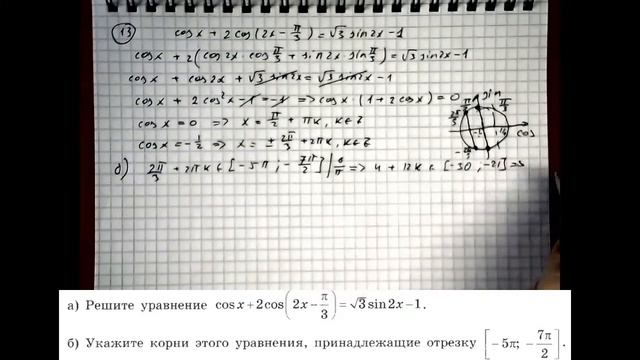 13
cos x + 2 cos(2x − π/3) = √3 sin 2x − 1
cos x + 2(cos 2x · cos π/3 + sin 2x · sin π/3) = √3 sin 2x − 1
cos x + cos 2x + √3 sin 2x = √3 sin 2x − 1
cos x + 2 cos² x − 1 = −1 ⇒ cos x (1 + 2 cos x) = 0
cos x = 0 ⇒ x = π/2 + πk, k ∈ Z
cos x = −1/2 ⇒ x = ± 2π/3 + 2πk, k ∈ Z
sin
cos
π/2
π/3
2π/3
−2π/3
б) 2π/3 + 2πk ∈ [−5π; −7π/2] | 6/π ⇒ 4 + 12k ∈ [−30; −21] ⇒
а) Решите уравнение cos x + 2cos(2x − π/3) = √3 sin 2x − 1.
б) Укажите корни этого уравнения, принадлежащие отрезку [−5π; −7π/2].